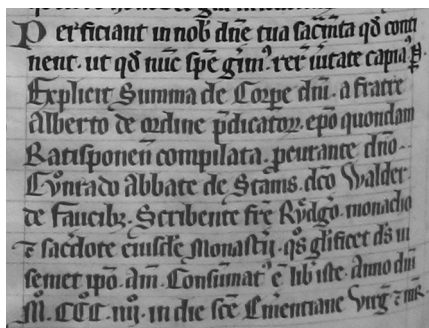 Perficiant in nob dne tua sacmta qd conti
nent. ut qd nuc spe gim9 rer vitate capia9 P.
Explicit Summa de Corpe dni. a fratre
Alberto de ordine pdicator. epo quondam
Ratisponen compilata. pcurante dno
Cvnrado Abbate de Stams. dco Walder
de faucibz. Scribente fre Rvdgo. monacho
⁊ sacdote eiusde Monastii. qs glificet ds in
semet ipo. am. Consumat9 e lib iste. anno dni
M. CCC. iiij. in die sce Ementiane Virg ⁊ mr.